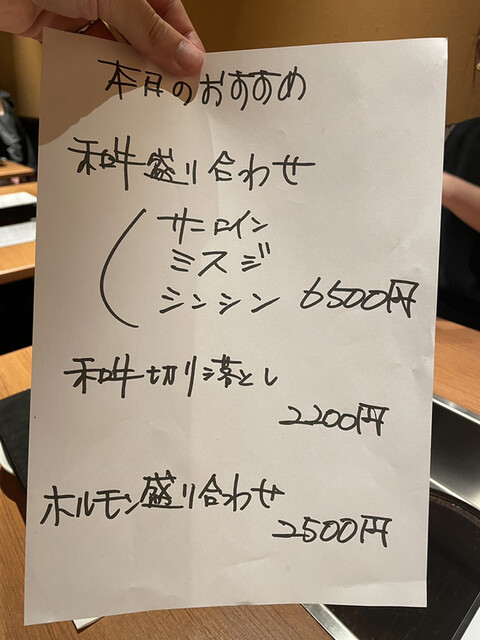 本月のおすすめ
和牛盛り合わせ
サーロイン
ミスジ
シンシン 6500円
和牛切り落とし
2200円
ホルモン盛り合わせ
2500円